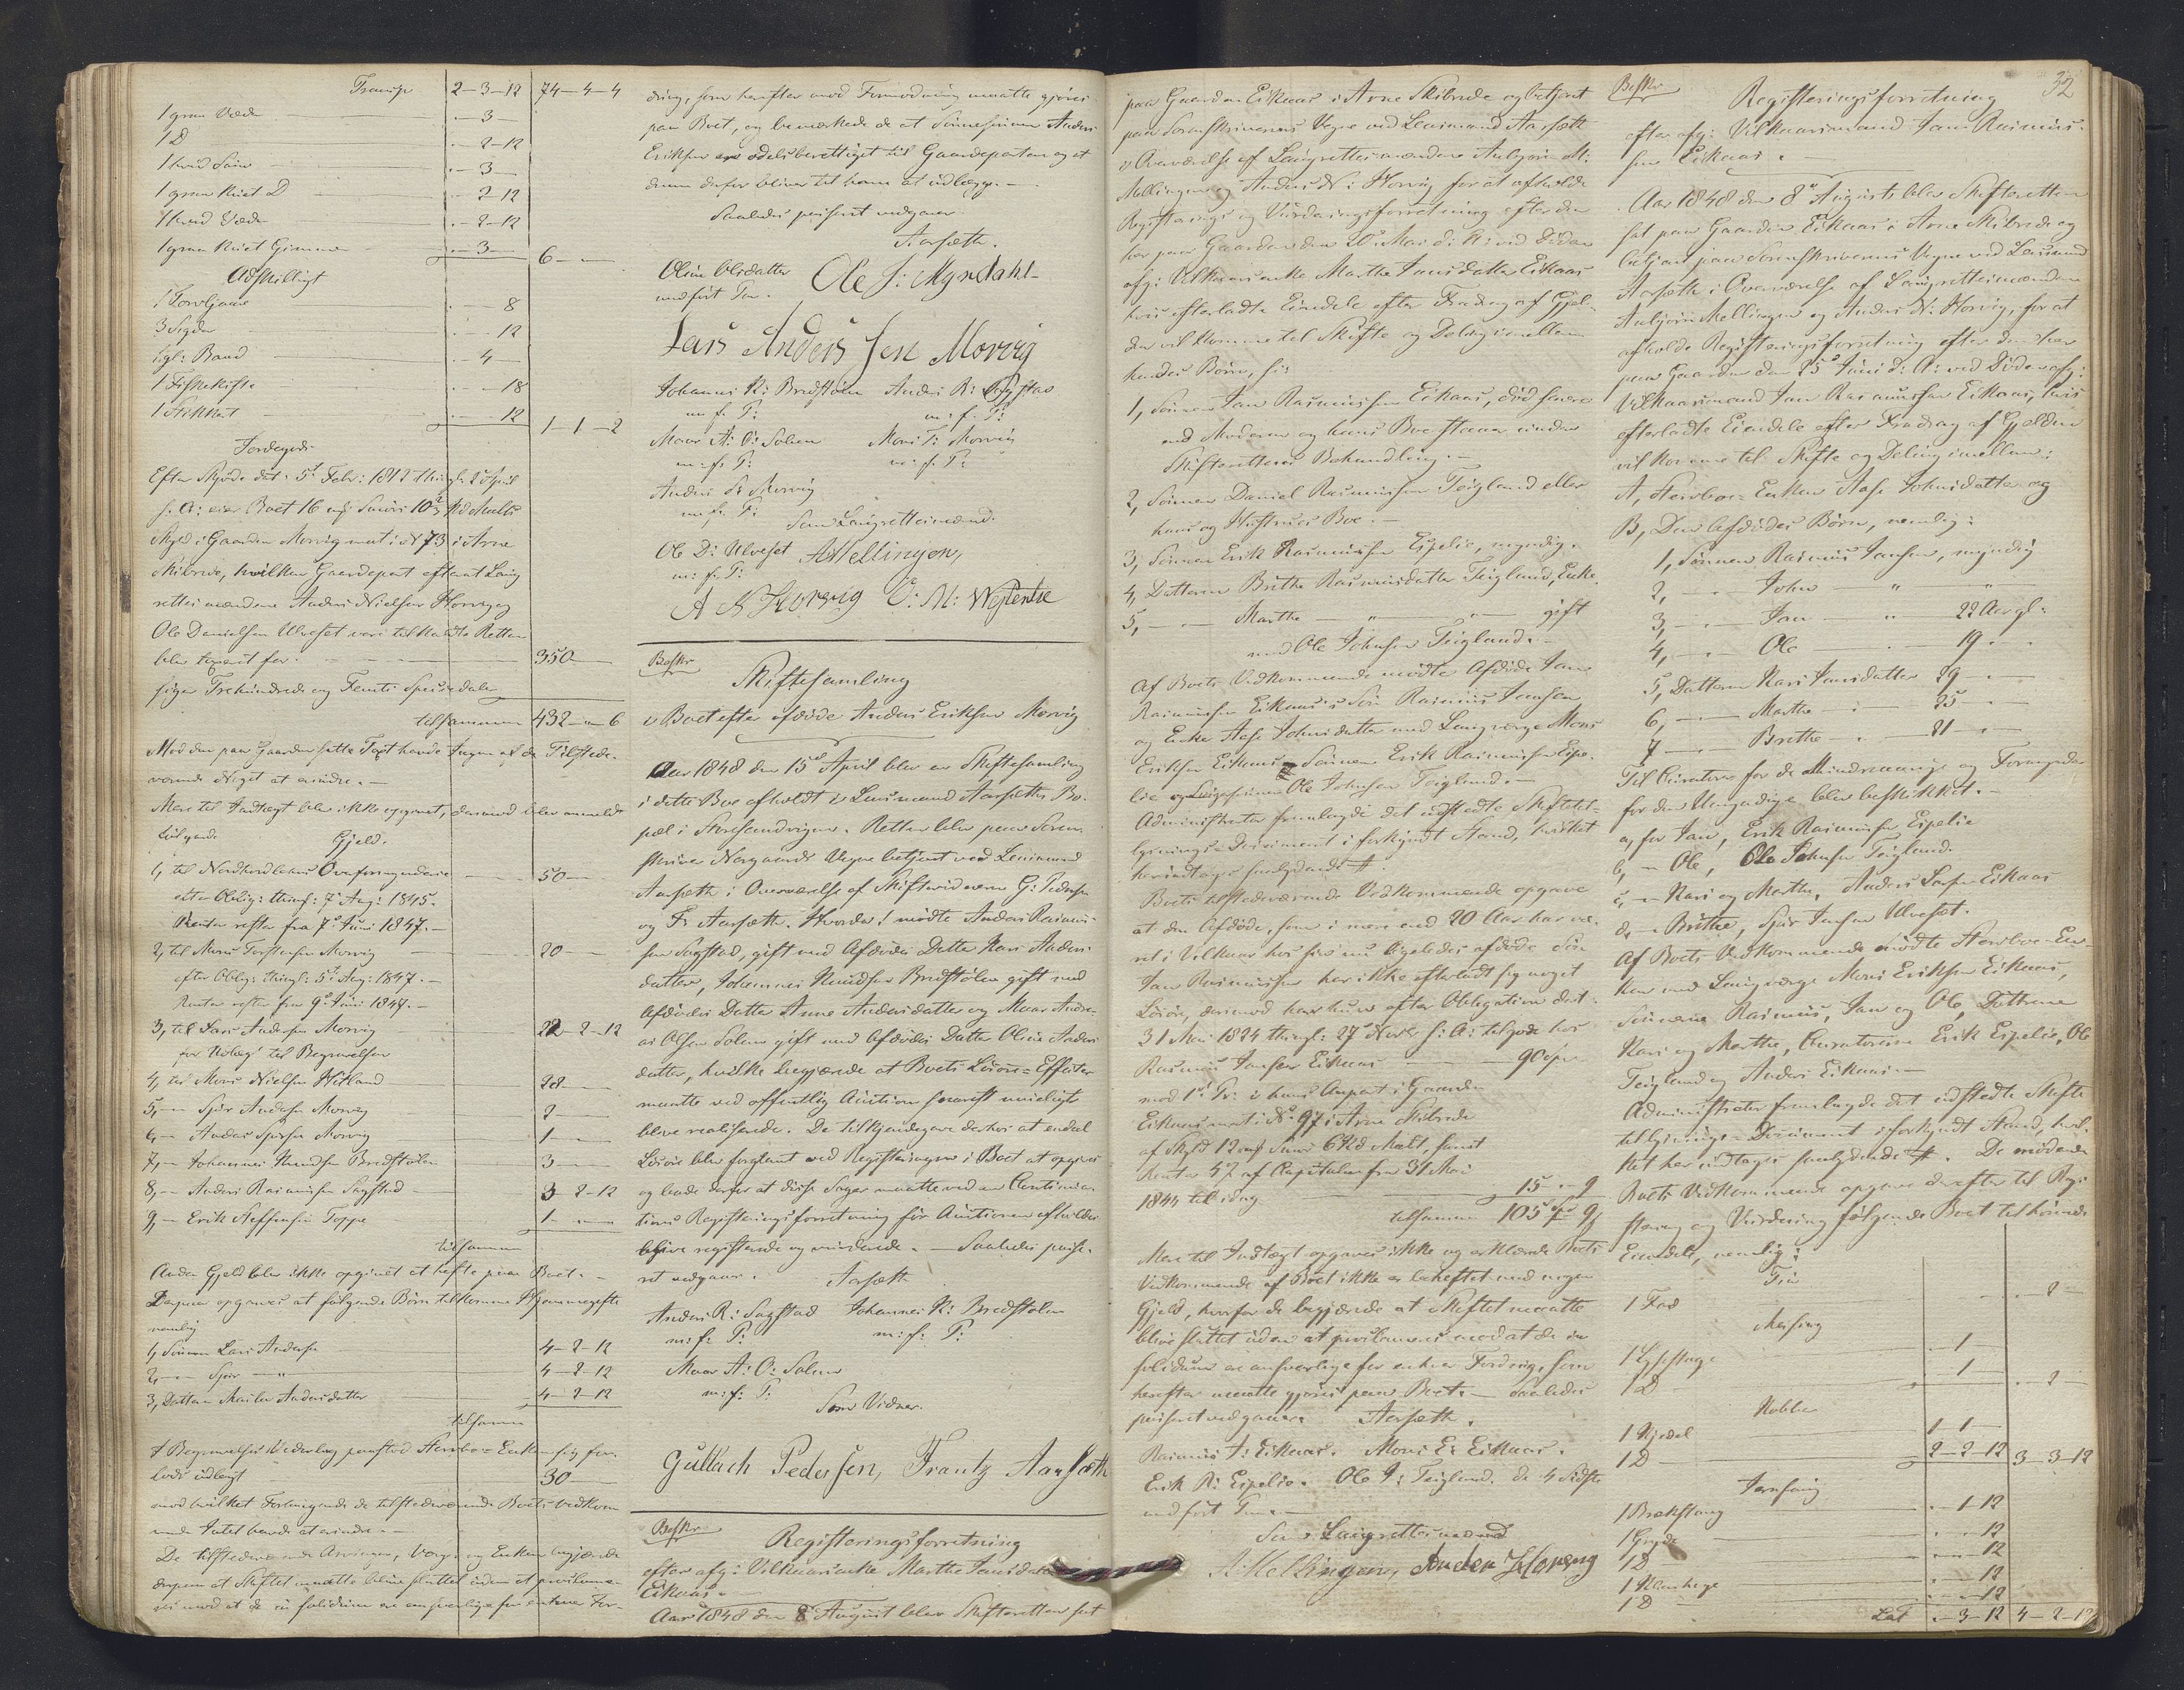 Transp 2-3-12 74-4-4
1 graa Væd -3-
1 D -2-12
1 hvid Sau -3-
1 graa D -2-12
1 hvid Væd -2-12
1 graa Gimmer -3- 6-
Adskilligt
1 -8
3 Segder -12
gl: Baand -4-
1 Fiskekiste -18
1 -12 1-1-2
Jordegods
Efter Skjøde dat: 5te Febr: 1812 thingl: 2 April
s. A: eier Boet 16 mks Smørs 10 2/3 Kd Malts
Skyld i Gaarden Morvig mat: N 73 i Arne
Skibrede, hvilken Gaardepart efterat Laug
rettesmændene Anders Nielsen Horvig og
Ole Danielsen Ulveset vare tilkaldte Retten
blev taxeret for 350-
siger Trehundrede og Femti Speciedaler
tilsammen 432-"-6
Mod den paa Gaarden satte Taxt havde Ingen af de Tilstede-
værende Noget at erindre.-
Mere til Indtægt blev ikke opgivet, derimod blev anmeldt
følgende Gjeld.
1, til Nordhordlehns Overformynderie 50-
efter Oblig: thingl: 7 Aug: 1845.
Renter rester fra 7de Juni 1847.-
2, til Mons Torstensen Morvig 20-
efter Oblig: thingl: 5te Aug: 1847.-
Renter rester fra 9de Juni 1847.-
3, til Lars Andersen Morvig 22-2-12
for til Begravelsen
4, til Mons Nielsen Hetland 28-
5, - Sjur Andersen Morvig 2-
6, - Anders Sjursen Morvig 1-
7, - Johannes Knudsen Bredstølen 3-
8, - Anders Rasmusen Sagstad 3-2-12
9, - Erik Steffensen Toppe 1-
tilsammen
Anden Gjeld blev ikke opgivet at hefte paa Boet.-
Derpaa opgaves at følgende Børn tilkomme Hjemmegifte
nemlig
1, Sønnen Lars Andersen 4-2-12
2, - Sjur - 4-2-12
3, Datteren Andersdatter 4-2-12
tilsammen
I Begravelses Vederlag paastod Stervbo-Enken sig for-
lods udlagt 30-
mod hvilket Forlangende de tilstedeværende Boets Vedkom-
mende Intet havde at erindre.-
De tilstedeværende Arvinger, Værger og Enken begjærede
derpaa at Skiftet maatte blive sluttet uden at proclame-
res mod at de in solidum ere ansvarlige for enhver For-
dring, som herefter mod Formodning maatte gjøres
paa Boet, og bemærkede de at Sønnesønnen Anders
Eriksen er odelsberettiget til Gaardeparten og at
denne derfor bliver til ham at udlægge.-
Saaledes passeret vedgaaer
Aarsæth.
Oline Olsdatter Ole J: Myrdahl-
med ført Pen.
Lars Anders sen Morvig
Johannes K: Bredstølen Anders R: Sagstad
m. f. P: m: f. P:
Maar A: O: Solem Mons T: Morvig
m: f. P: m: f. P:
Anders S: Morvig
m. f. P:
Som Laugrettesmænd.
Ole D: Ulveset AMellingen,
m: f. P:
A N Horvig
Beskr
Skiftesamling
i Boet efter afdøde Anders Eriksen Morvig
Aar 1848 den 15de April blev en Skiftesamling
i dette Boe afholdt i Lensmand Aarsæths Bo-
pæl i Storesandvigen. Retten blev paa Soren-
skriver Norgaards Vegne betjent ved Lensmand
Aarsæth i Overværelse af Skiftevidnerne G: Pedersen
og Fr. Aarsæth. Hvorda! mødte Anders Rasmu-
sen Sagstad, gift med Afdødes Datter Kari Anders-
datter, Johannes Knudsen Bredstølen gift med
Afdødes Datter Anne Andersdatter og Maar Andre-
as Olsen Solem gift med Afdødes Datter Oline Anders-
datter, hvilke begjærede at Boets Løsøre-Effecter
maatte ved offentlig Auction snarest muligt
blive realiserede. De tilkjendegave derhos at endeel
Løsøre blev forglemt ved Registeringen i Boet at opgives
og bade derfor at disse Sager maatte ved en Continua-
tions Registeringsforretning før Auctionen afholdes
blive registrerede og vurderede.- Saaledes passe-
ret vedgaaer. Aarsæth
Anders R: Sagstad Johannes K: Bredstølen
m: f. P: m: f: P:
Maar A: O: Solem
m: f: P:
Som Vidner.
Gullach Pedersen, Frantz Aarsæth
Beskr
Registeringsforretning
efter afg: Vilkaarsenke Marthe Jansdatter
Eikaas.
Aar 1848 den 8 August blev Skifteretten sat
paa Gaarden Eikaas i Arne Skibrede og betjent
paa Sorenskriverens Vegne ved Lensmand Aarsæth
i Overværelse af Laugrettesmændene Anbjørn M:
Mellingen og Anders N: Horvig for at afholde
Registerings og Vurderingsforretning efter den
her paa Gaarden den 20de Mai d: A: ved Døden
afg: Vilkaarsenke Marthe Jansdatter Eikaas
hvis efterladte Eiendele efter Fradrag af Gjel-
den vil komme til Skifte og Deling imellem
hendes Børn, s:
1, Sønnen Jan Rasmussen Eikaas, død senere
end Moderen og hans Boe staaer under
Skifterettens Behandling.-
2, Sønnen Daniel Rasmussen Teigland eller
hans og Hustrues Boe.-
3, Sønnen Erik Rasmussen Espelie, myndig.
4, Datteren Brithe Rasmusdatter Teigland, Enke.
5, - Marthe - " - gift
med Ole Johnsen Teigland.-
Af Boets Vedkommende mødte Afdøde Jan
Rasmussen Eikaas's Søn Rasmus Jansen
og Enke Aase Johnsdatter med Laugværge Mons
Eriksen Eikaas, Sønnen Erik Rasmussen Espe-
lie og Svigersønnen Ole Johnsen Teigland.-
Administrator fremlagde det udstedte Skiftetil-
lysnings-Document i forkyndt Stand, hvilket
her indtages saalydende #.
Boets tilstedeværende Vedkommende opgave
at den Afdøde, som i mere end 20 Aar har væ-
ret i Vilkaar hos sin nu ligeledes afdøde Søn
Jan Rasmussen har ikke efterladt sig noget
Løsøre, derimod har hun efter Obligation dat:
31 Mai 1824 thingl: 27de s: A: tilgode hos
Rasmus Jansen Eikaas 90 spd
mod 1ste Pr: i hans Anpart i Gaarden
Eikaas mat: No 97 i Arne Skibrede
af Skyld 12 mks Smør 6 Kd Malt, samt
Renter 4% af Capitalen fra 31 Mai
1844 til idag 15-"-9
tilsammen 105 spd 9
Mere til Indtægt opgaves ikke og erklærede Boets
Vedkommende at Boet ikke er beheftet med nogen
Gjeld, hvorfor de begjærede at Skiftet maatte
blive sluttet uden at proclameres mod at de in
solidum ere ansvarlige for enhver Fordring, som
herefter maatte gjøres paa Boet.- Saaledes
passeret vedgaaer. Aarsæth.
Rasmus J: Eikaas. Mons E: Eikaas.
Erik R: Espelie. Ole J: Teigland. de 4 sidste
med ført Pen.-
Som Laugrettesmænd
AMellingen, Anders N Horvig
32
Beskr
Registeringsforretning
efter afg: Vilkaarsmand Jan Rasmus-
sen Eikaas.
Aar 1848 den 8de August blev Skifteretten
sat paa Gaarden Eikaas i Arne Skibrede og
betjent paa Sorenskriverens Vegne ved Lensmand
Aarsæth i Overværelse af Laugrettesmændene
Anbjørn Mellingen og Anders N: Horvig, for at
afholde Registeringsforretning efter den her
paa Gaarden den 25de Juni d: A: ved Døden afg:
Vilkaarsmand Jan Rasmussen Eikaas, hvis
efterladte Eiendele efter Fradrag af Gjelden
vil komme til Skifte og Deling imellem:
A, Stervboe-Enken Aase Johnsdatter og
B, Den Afdødes Børn, nemlig:
1, Sønnen Rasmus Jansen, myndig
2, - John " "
3, - Jan " 22 Aar gl:
4, - Ole - 19 -
5, Datteren Kari Jansdatter 29 -
6, - Marthe - 25 -
7 - Brithe - 21 -
Til Curatorer for de Mindreaarige og Formynder
for den Umyndige blev beskikket.-
a, for Jan, Erik Rasmussen Espelie
b, - Ole, Ole Johnsen Teigland.
c, - Kari og Marthe, Anders Larsen Eikaas
d, - Brithe, Sjur Jansen Ulveset.
Af Boets Vedkommende mødte Stervboe-En-
ken med Laugværge Mons Eriksen Eikaas,
Sønnerne Rasmus, Jan og Ole, Døttrene
Kari og Marthe, Curatorerne Erik Espelie, Ole
Teigland og Anders Eikaas.-
Administrator fremlagde det udstedte Skifte
tillysnings-Document i forkyndt Stand, hvil-
ket her indtages saalydende #. De mødende
Boets Vedkommende opgave derefter til Regi-
stering og Vurdering følgende Boet tilhørende
Eiendele, nemlig:
Tin
1 Fad -2-
Messing
1 Lysestage -1
1 D -1 -2
Kobber
1 Kjedel 1-1
1 D 2-2-12 3-3-12
Jernfang
1 Brækstang -1-12
1 Gryde -12
1 D -12
1 -12
1 D -12
Lat -3-12 4-2-12